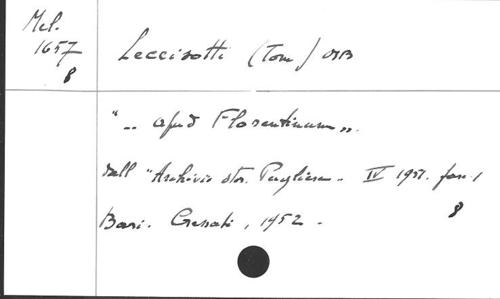 Mel.
1657
8
Leccisotti (Tom) OSB
".. apud Florentinum".
dall "Archivio stor. Pugliese" IV 1951. fasc 1
8
Bari. Cressati, 1952.